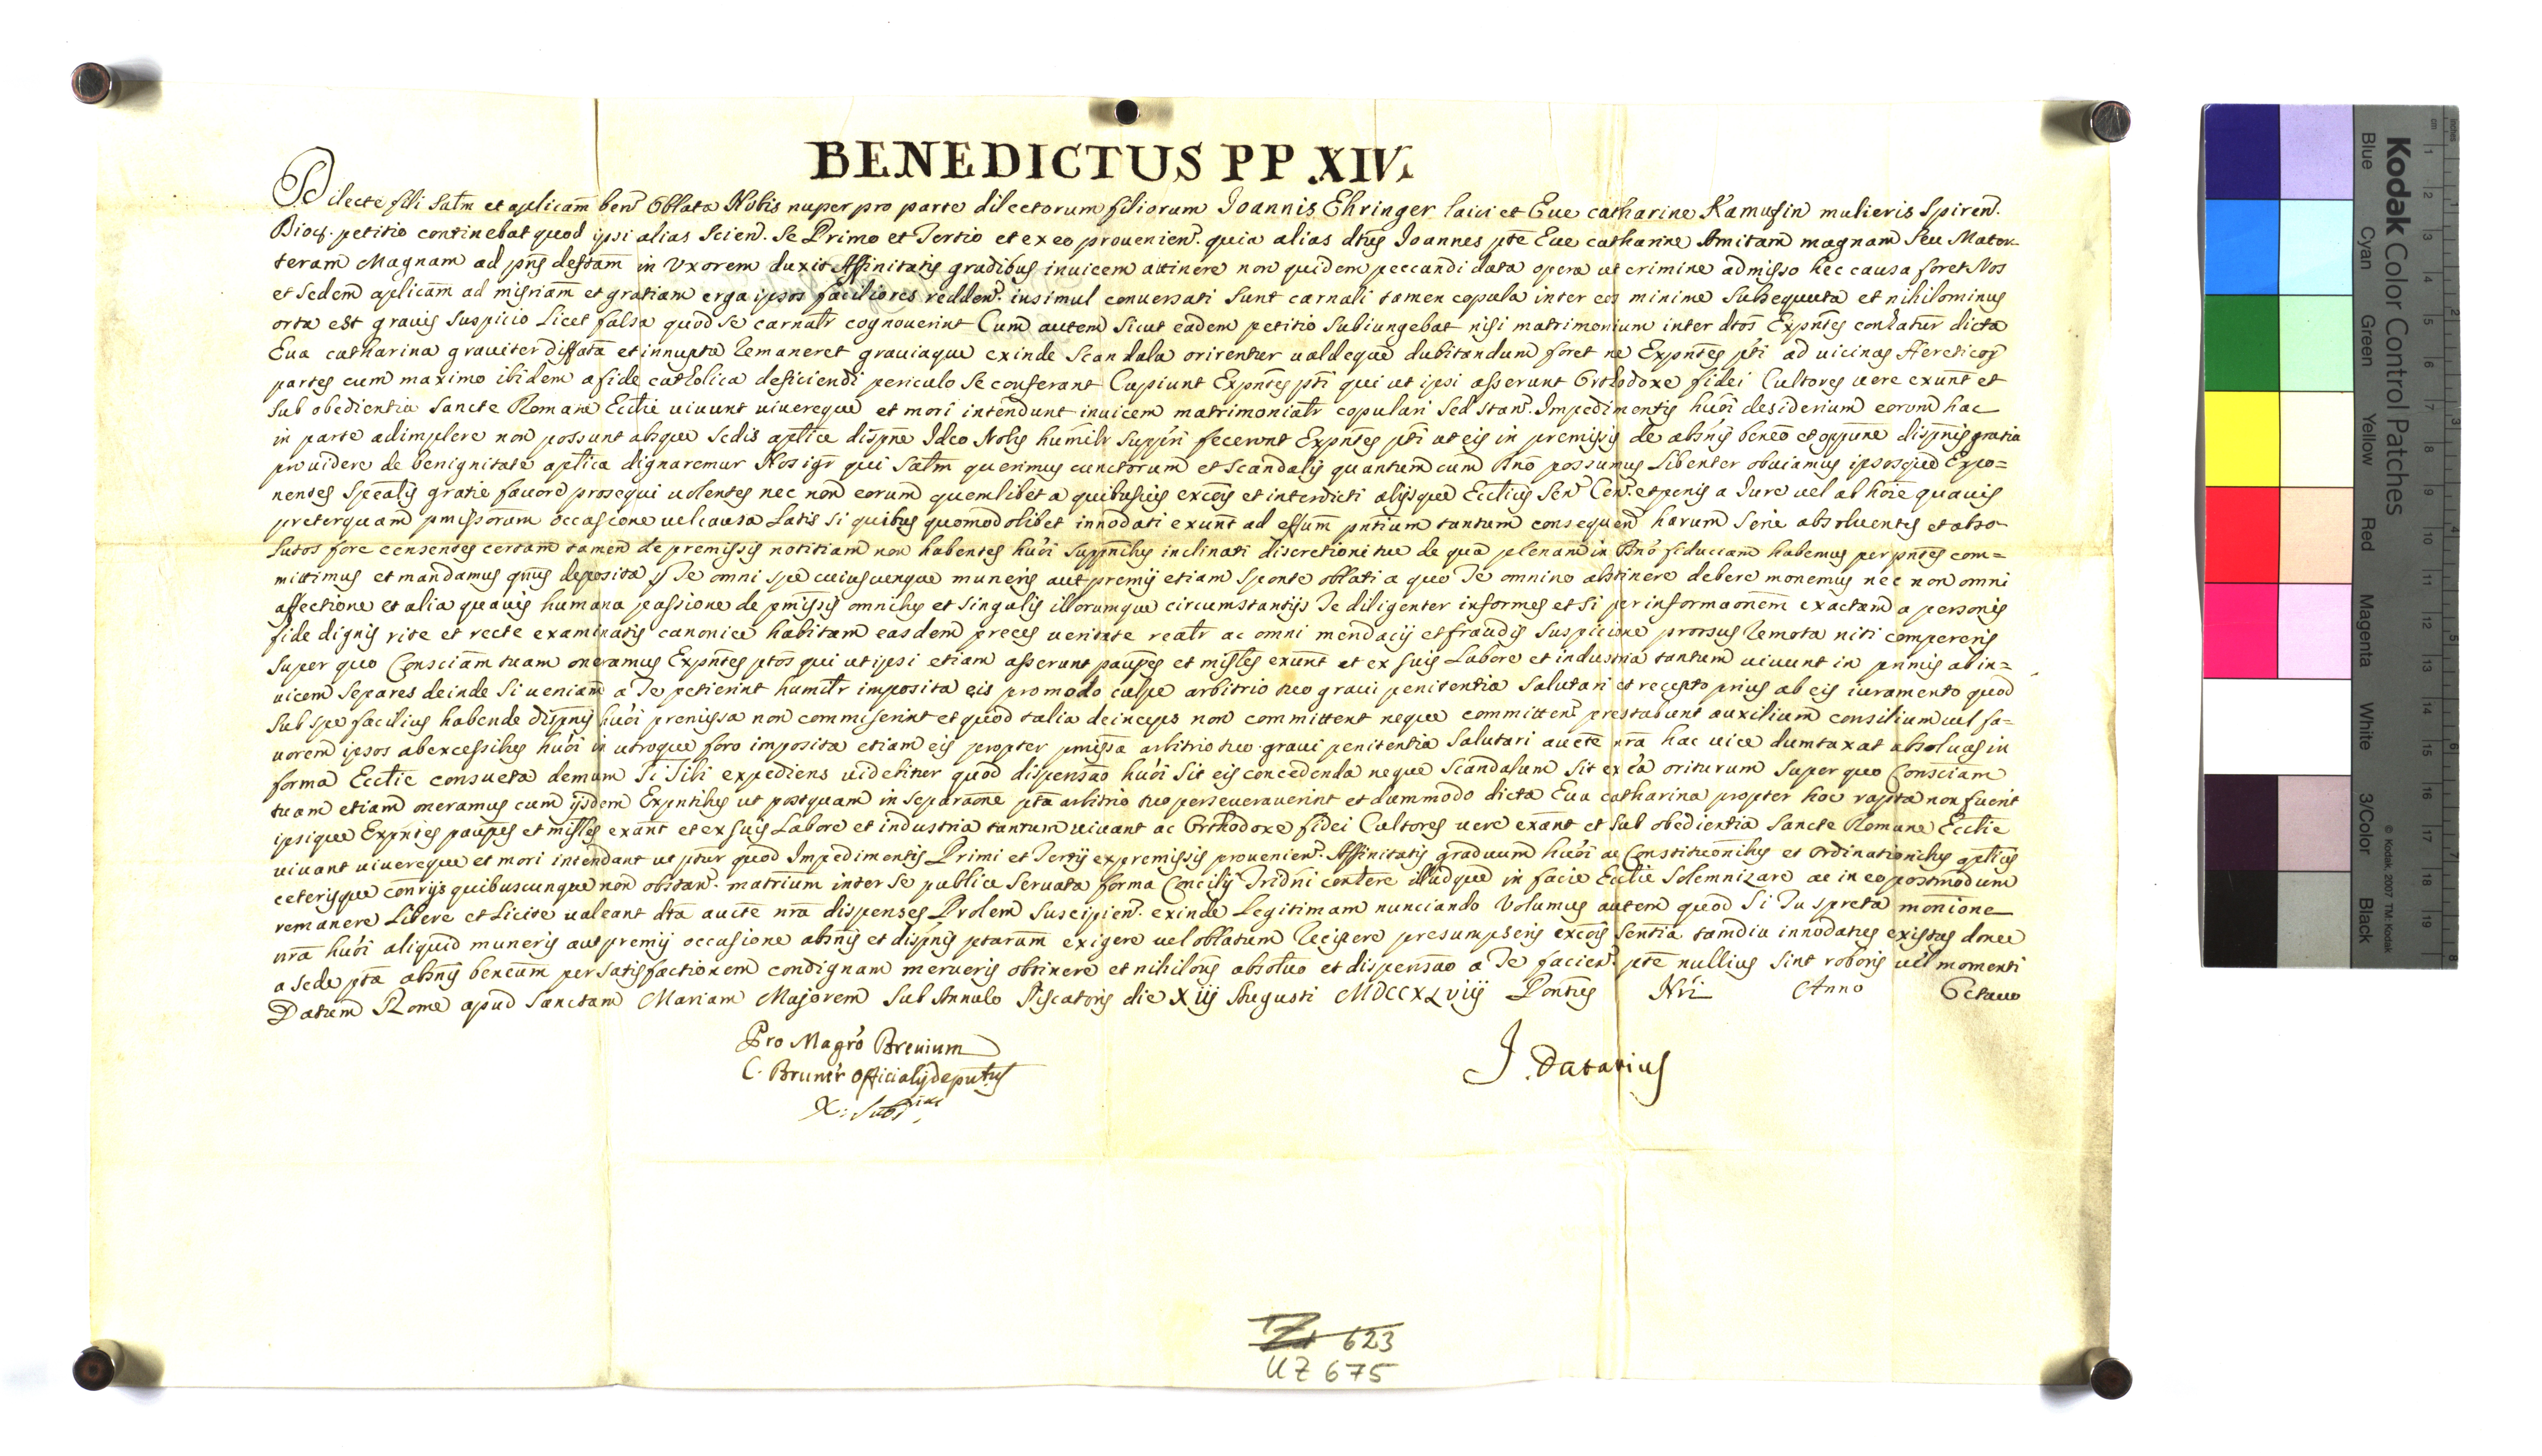 BENEDICTUS PP XIV.
Dilecte fili Salm et aplicam ben. Oblata Nobis nuper pro parte dilectorum filiorum Joannis Ehringer laici et Eue catharine Kamusin mulieris Spiren.
Dioc. petitio continebat quod ipsi alias Scien. Se Primo et Tertio et ex eo prouenien. quia alias dtus Joannes pte Eue catharine Amitam magnam Seu Mater-
teram Magnam ad pns deftam in Vxorem duxit Affinitatis gradibus inuicem attinere non quidem peccandi data opera ut crimine admisso hec causa foret Nos
et Sedem aplicam ad misriam et gratiam erga ipsos faciliores redden. insimul conuersati Sunt carnali tamen copula inter eos minime Subsequuta et nihilominus
orta est grauis Suspicio Licet falsa quod Se carnalr cognouerint Cum autem Sicut eadem petitio Subiungebat nisi matrimonium inter dtos Expntes contatur dicta
Eua catharina grauiter diffata et innupta remaneret grauiaque exinde Scandala orirentur ualdeque dubitandum foret ne Expntes pti ad uicinas Hereticor
partes cum maximo ibidem a fide catholica deficiendi periculo Se conferant Cupiunt Expntes pti qui ut ipsi asserunt Orthodoxe fidei Cultores uere exunt et
Sub obedientia Sancte Romane Ecclie uiuunt uiuereque et mori intendunt inuicem matrimonialr copulari Sed Stan. Impedimentis huoi desiderium eorum hac
in parte adimplere non possunt absque Sedis aplice dispne Ideo Nobis humilr Suppri fecerunt Expntes pti ut eis in premissis de absnis beneo et oppune dispnis gratia
prouidere de benignitate aplica dignaremur Nos igr qui Salm querimus cunctorum et Scandalis quantum cum Dno possumus Libenter obuiamus ipsosque Expo=
nentes Spealis gratie fauore prosequi uolentes nec non eorum quemlibet a quibusuis excois et interdicti alijsque Ecclicis Sen. Cen. et penis a Jure uel ab hoie quauis
preterquam pmissorum occasione uel causa Latis Si quibus quomodolibet innodati exunt ad effum pntium tantum consequen harum Serie absoluentes et abso-
lutos fore censentes certam tamen de premissis notitiam non habentes huoi Suppnibus inclinati discretioni tue de qua plenam in Dno fiduciam habemus per pntes com=
mittimus et mandamus qnus deposita p Te omni Spe cuiuscunque muneris aut premij etiam Sponte oblati a quo Te omnino abstinere debere monemus nec non omni
affectione et alia quauis humana passione de pmissis omnibus et Singulis illorumque circumstantijs Te diligenter informes et Si per informaonem exactam a personis
fide dignis rite et recte examinatis canonice habitam easdem preces ueritate realr ac omni mendacij et fraudis Suspicione prorsus remota niti compereris
Super quo Consciam tuam oneramus Expntes ptos qui ut ipsi etiam asserunt paupes et misles exunt et ex Suis Labore et industria tantum uiuunt in primis abin=
uicem Separes deinde Si ueniam a Te petierint humilr imposita eis pro modo culpe arbitrio tuo graui penitentia Salutari et recepto prius ab eis iuramento quod
Sub Spe facilius habende dispnis huoi premissa non commiserint et quod talia deinceps non committent neque committen. prestabunt auxilium consilium uel fa=
uorem ipsos ab excessibus huoi in utroque foro imposita etiam eis propter pmissa arbitrio tuo graui penitentia Salutari aucte nra hac uice dumtaxat absoluas in
forma Ecclie consueta demum Si Tibi expediens uidebitur quod dispensao huoi Sit eis concedenda neque Scandalum Sit ex ea oriturum Super quo Consciam
tuam etiam oneramus cum ijsdem Expntibus ut postquam in Separaone pta arbitrio tuo perseuerauerint et dummodo dicta Eua catharina propter hoc rapta non fuerit
ipsique Expntes paupes et misles exant et ex Suis Labore et industria tantum uiuant ac Orthodoxe fidei Cultores uere exant et Sub obedientia Sancte Romane Ecclie
uiuant uiuereque et mori intendant ut ptur quod Impedimentis Primi et Tertij ex premissis prouenien. Affinitatis graduum huoi ac Constitutionibus et Ordinationibus aplicis
ceterisque conrijs quibuscunque non obstan. matrium inter Se publice Seruata forma Concilij Tridni contere illudque in facie Ecclie Solemnizare ac in eo postmodum
remanere Libere et Licite ualeant dta aucte nra dispenses Prolem Suscipien. exinde Legitimam nunciando Volumus autem quod Si Tu Spreta monione
nra huoi aliquid muneris aut premij occasione absnis et dispnis ptarum exigere uel oblatum recipere presumpseris excois Sentia tamdiu innodatus existas donec
a Sede pta absnis beneum per Satisfactionem condignam merueris obtinere et nihilons absoluo et dispensao a Te facien. pte nullius Sint roboris uel momenti
Datum Rome apud Sanctam Mariam Majorem Sub Annulo Piscatoris die Xiij Augusti MDCCXLviij Pontus Nri Anno Octauo
Pro Magro Breuium
C. Bruner Officialis deputus
J. Datarius
623
UZ 675
Kodak Color Control Patches
Blue Cyan Green Yellow Red Magenta White 3/Color Black
© Kodak, 2007 TM: Kodak
inches
cm 1 2 3 4 5 6 7 8 9 10 11 12 13 14 15 16 17 18 19